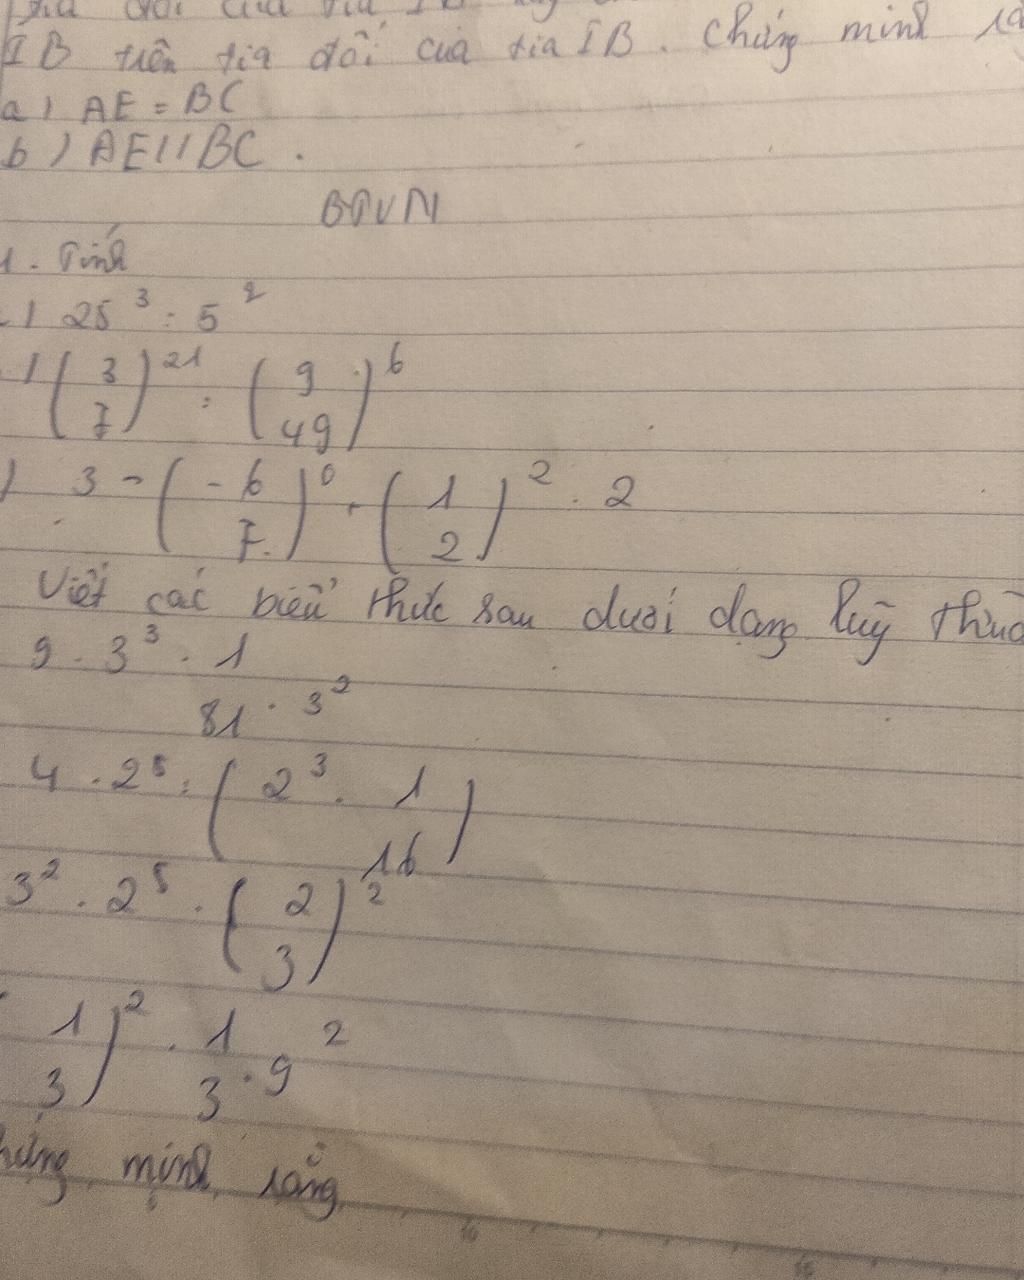 IB trên tia đối của tia IB. Chứng minh
a) AE = BC
b) AE // BC.
BTVN
1. Tính
) 25³ : 5²
) (3/7)²¹ : (9/49)⁶
) 3 - (-6/7)⁰ + (1/2)² : 2
Viết các biểu thức sau dưới dạng luỹ
9 . 3³ . 1/81 . 3²
4 . 2⁵ : (2³ . 1/16)
3² . 2⁵ . (2/3)²
1/3)² . 1/3 . 9²
minh rằng